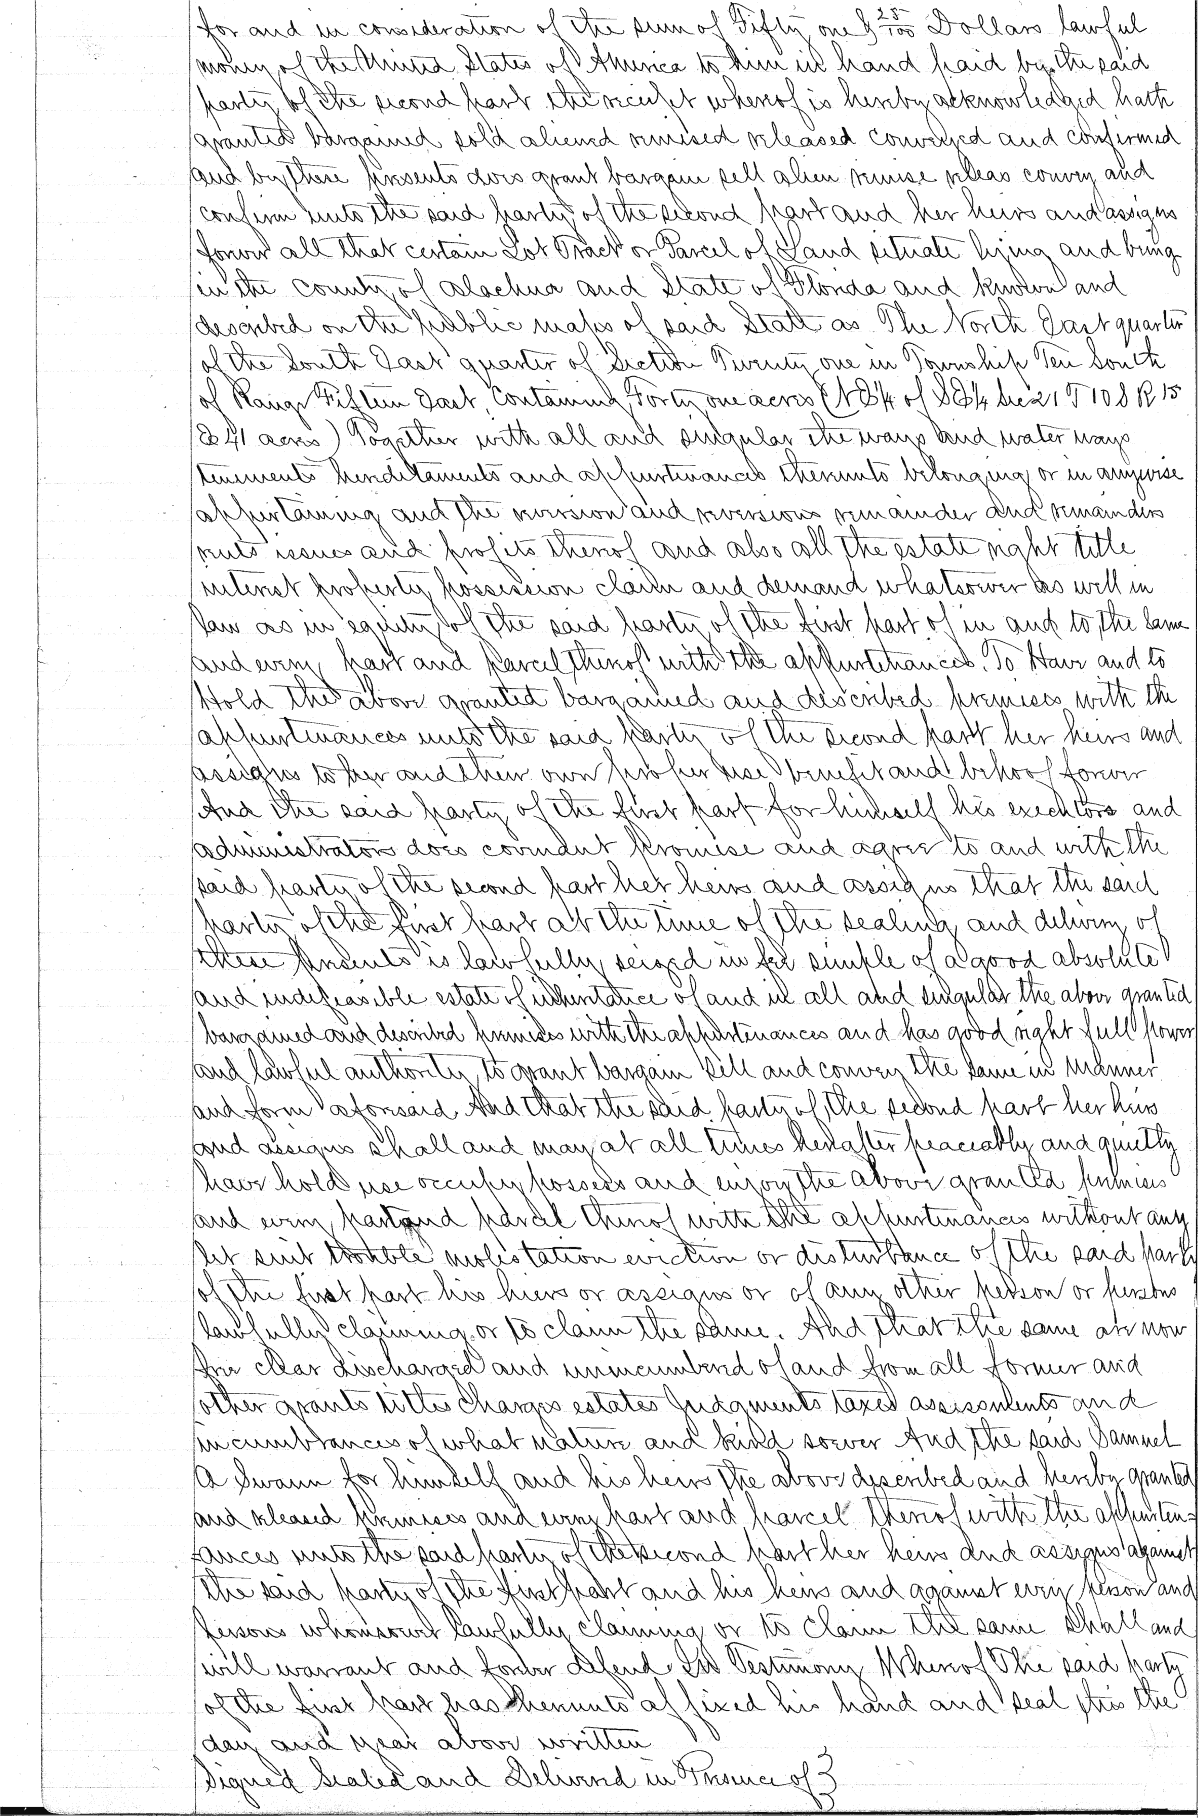 for and in consideration of the sum of Fifty one & 25/100 Dollars lawful
money of the United States of America to him in hand paid by the said
party of the second part the receipt whereof is hereby acknowledged hath
granted bargained sold aliened remised released conveyed and confirmed
and by these presents does grant bargain sell alien remise releas convey and
confirm unto the said party of the second part and her heirs and assigns
forever all that certain Lot Tract or Parcel of Land situate lying and being
in the County of Alachua and State of Florida and known and
described on the public maps of said State as The North East quarter
of the South East quarter of Section Twenty one in Township Ten South
of Range Fifteen East, Containing Forty one acres (NE¼ of SE¼ Sec 21 T 10 S R 15
E 41 acres) Together with all and singular the ways and water ways
tenements hereditaments and appurtenances thereunto belonging or in anywise
appertaining and the reversion and reversions remainder and remainders
rents issues and profits thereof and also all the estate right title
interest property possession claim and demand whatsoever as well in
law as in equity of the said party of the first part of in and to the same
and every part and parcel thereof with the appurtenances. To Have and to
Hold the above granted bargained and described premises with the
appurtenances unto the said party of the second part her heirs and
assigns to her and their own proper use benefit and behoof forever
And the said party of the first part for himself his executors and
administrators does covenant promise and agree to and with the
said party of the second part her heirs and assigns that the said
party of the first part at the time of the sealing and delivery of
these presents is lawfully seized in fee simple of a good absolute
and indefeasible estate of inheritance of and in all and singular the above granted
bargained and described premises with the appurtenances and has good right full power
and lawful authority to grant bargain sell and convey the same in manner
and form aforesaid And that the said party of the second part her heirs
and assigns shall and may at all times hereafter peaceably and quietly
have hold use occupy possess and enjoy the above granted premises
and every part and parcel thereof with the appurtenances without any
let suit trouble molestation eviction or disturbance of the said party
of the first part his hiers or assigns or of any other person or persons
lawfully claiming or to claim the same. And that the same are now
free clear discharged and unincumbered of and from all former and
other grants titles charges estates Judgments taxes assessments and
incumbrances of what nature and kind soever And the said Samuel
A Swann for himself and his heirs the above described and hereby granted
and released premises and every part and parcel thereof with the appurten=
ances unto the said party of the second part her heirs and assigns against
the said party of the first part and his heirs and against every person and
persons whomsoever lawfully claiming or to claim the same shall and
will warrant and forever defend In Testimony Whereof The said party
of the first part has hereunto affixed his hand and seal this the
day and year above written
Signed Sealed and Delivered in Presence of }